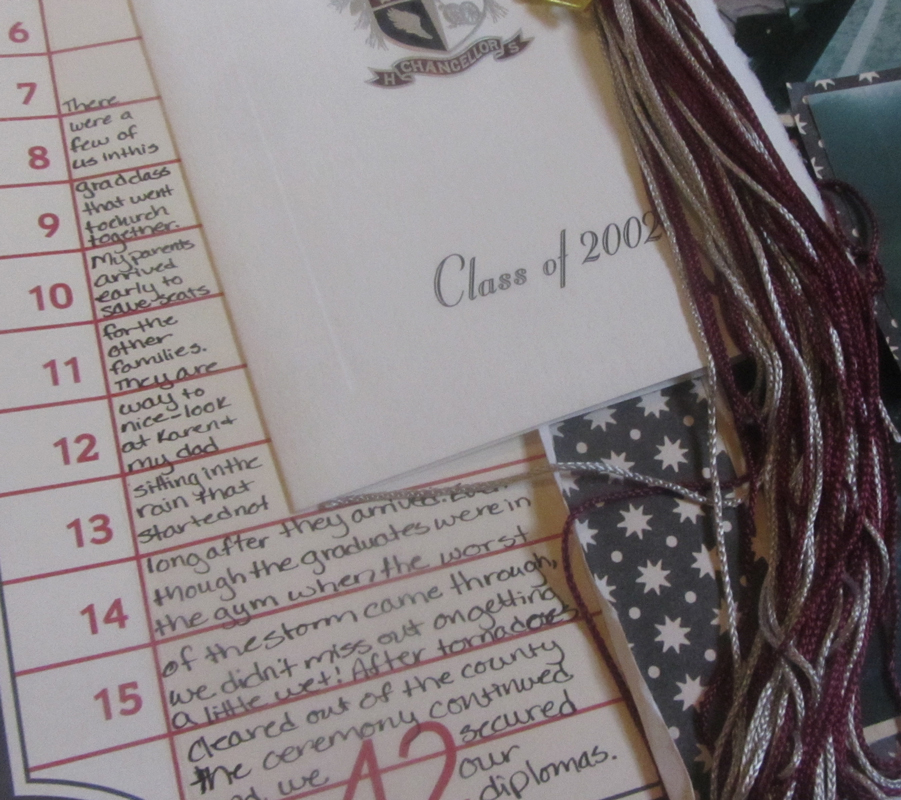 H CHANCELLOR S
Class of 2002
6
7
There
were a
8
few of
us in this
gradclass
9
that went
to church
together.
My parents
10
arrived
early to
save seats
for the
11
other
families.
They are
way to
12
nice-look
at Karen +
my dad
sitting in the
13
rain that
started not
long after they arrived. Even
though the graduates were in
14
the gym when the worst
of the storm came through,
we didn't miss out on getting
15
a little wet! After tornadoes
cleared out of the county
the ceremony continued
we 42 secured
our
diplomas.